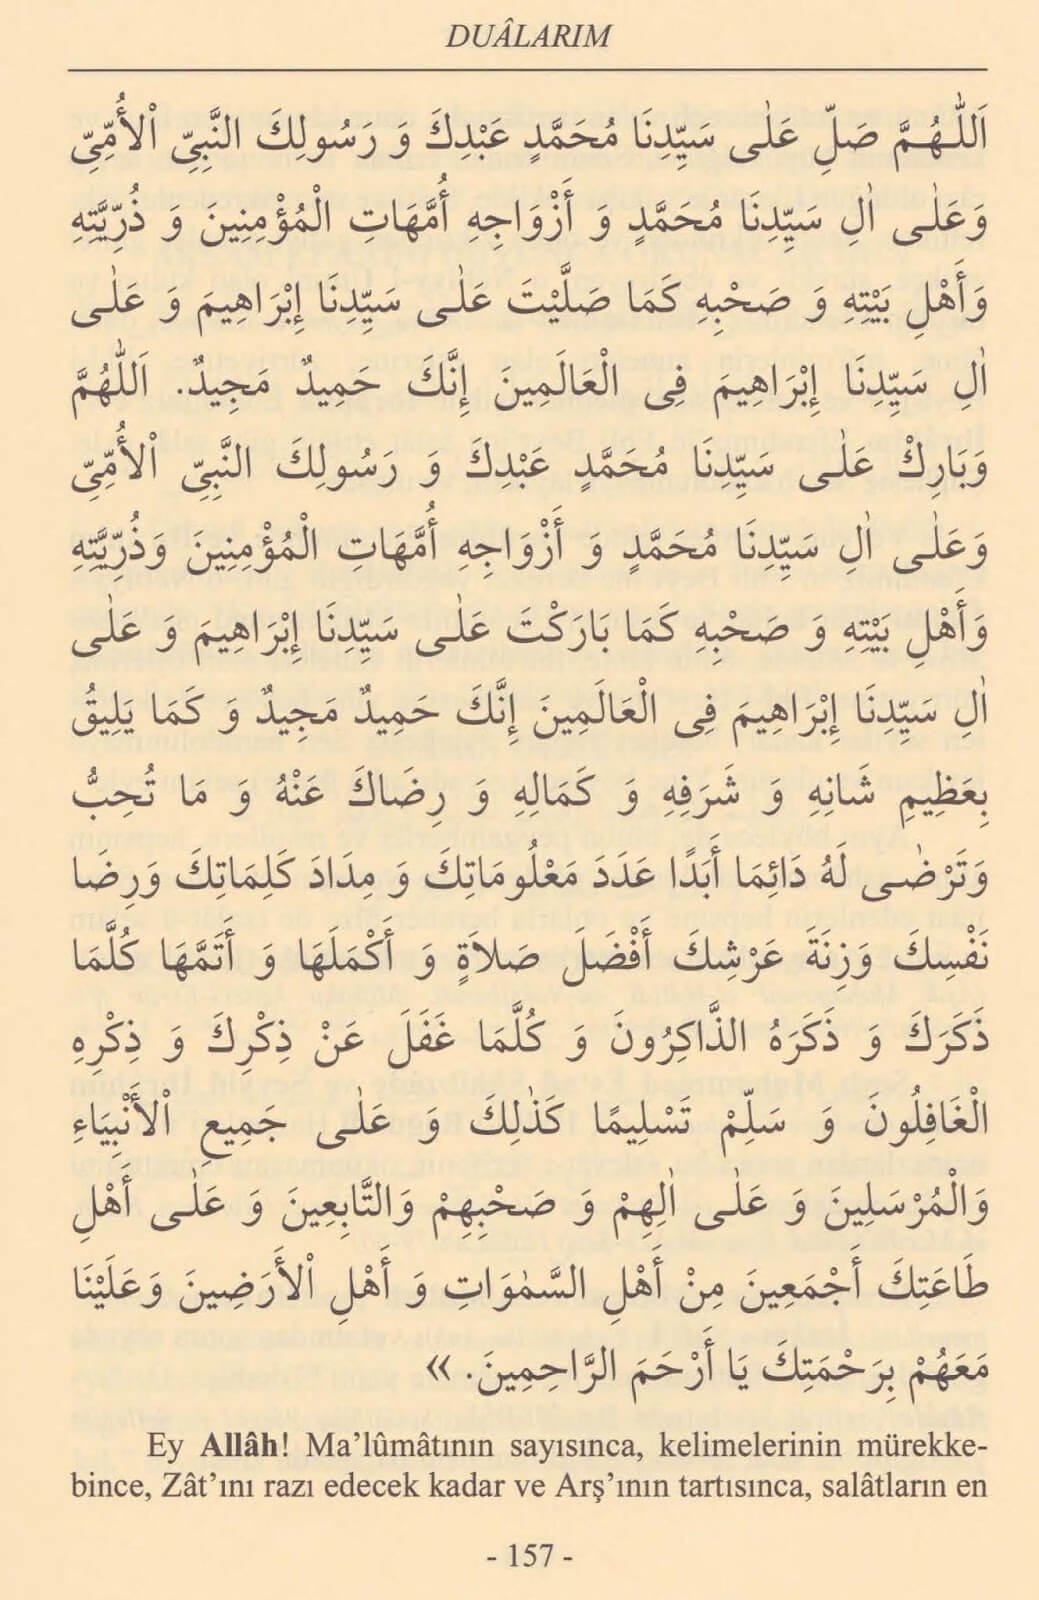 DUÂLARIM
اَللّٰهُمَّ صَلِّ عَلٰى سَيِّدِنَا مُحَمَّدٍ عَبْدِكَ وَ رَسُولِكَ النَّبِىِّ اْلأُمِّىِّ
وَعَلٰى اٰلِ سَيِّدِنَا مُحَمَّدٍ وَ أَزْوَاجِهِ أُمَّهَاتِ الْمُؤْمِنِينَ وَ ذُرِّيَّتِهِ
وَأَهْلِ بَيْتِهِ وَ صَحْبِهِ كَمَا صَلَّيْتَ عَلٰى سَيِّدِنَا إِبْرَاهِيمَ وَ عَلٰى
اٰلِ سَيِّدِنَا إِبْرَاهِيمَ فِى الْعَالَمِينَ إِنَّكَ حَمِيدٌ مَجِيدٌ. اَللّٰهُمَّ
وَبَارِكْ عَلٰى سَيِّدِنَا مُحَمَّدٍ عَبْدِكَ وَ رَسُولِكَ النَّبِىِّ اْلأُمِّىِّ
وَعَلٰى اٰلِ سَيِّدِنَا مُحَمَّدٍ وَ أَزْوَاجِهِ أُمَّهَاتِ الْمُؤْمِنِينَ وَذُرِّيَّتِهِ
وَأَهْلِ بَيْتِهِ وَ صَحْبِهِ كَمَا بَارَكْتَ عَلٰى سَيِّدِنَا إِبْرَاهِيمَ وَ عَلٰى
اٰلِ سَيِّدِنَا إِبْرَاهِيمَ فِى الْعَالَمِينَ إِنَّكَ حَمِيدٌ مَجِيدٌ وَ كَمَا يَلِيقُ
بِعَظِيمِ شَانِهِ وَ شَرَفِهِ وَ كَمَالِهِ وَ رِضَاكَ عَنْهُ وَ مَا تُحِبُّ
وَتَرْضٰى لَهُ دَائِمَا أَبَدًا عَدَدَ مَعْلُومَاتِكَ وَ مِدَادَ كَلِمَاتِكَ وَرِضَا
نَفْسِكَ وَزِنَةَ عَرْشِكَ أَفْضَلَ صَلاَةٍ وَ أَكْمَلَهَا وَ أَتَمَّهَا كُلَّمَا
ذَكَرَكَ وَ ذَكَرَهُ الذَّاكِرُونَ وَ كُلَّمَا غَفَلَ عَنْ ذِكْرِكَ وَ ذِكْرِهِ
الْغَافِلُونَ وَ سَلِّمْ تَسْلِيمًا كَذٰلِكَ وَ عَلٰى جَمِيعِ اْلأَنْبِيَاءِ
وَالْمُرْسَلِينَ وَ عَلٰى اٰلِهِمْ وَ صَحْبِهِمْ وَالتَّابِعِينَ وَ عَلٰى أَهْلِ
طَاعَتِكَ أَجْمَعِينَ مِنْ أَهْلِ السَّمٰوَاتِ وَ أَهْلِ اْلأَرَضِينَ وَعَلَيْنَا
مَعَهُمْ بِرَحْمَتِكَ يَا أَرْحَمَ الرَّاحِمِينَ. »
Ey Allâh! Ma’lûmâtının sayısınca, kelimelerinin mürekke-
bince, Zât’ını razı edecek kadar ve Arş’ının tartısınca, salâtların en
- 157 -